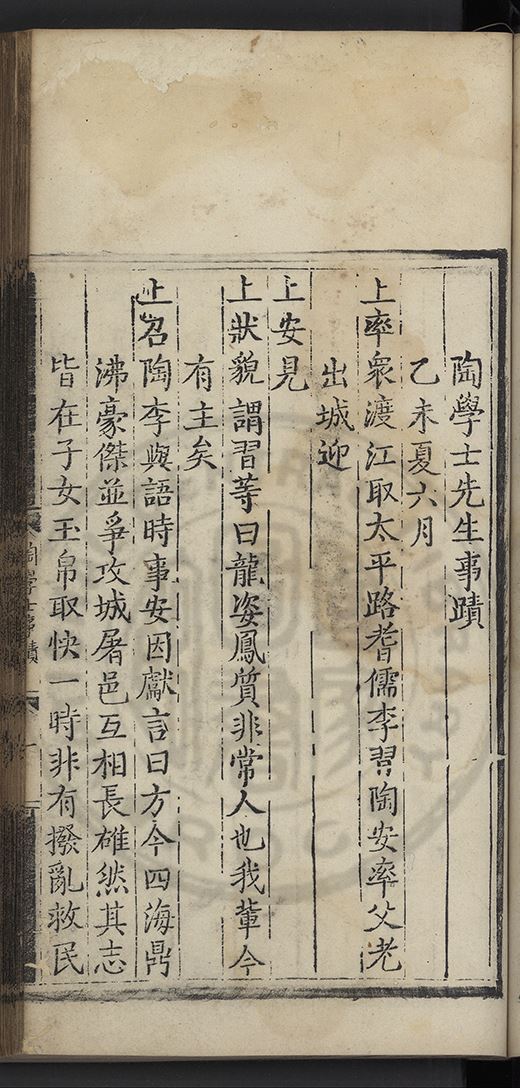 陶學士先生事蹟
乙未夏六月
上率衆渡江取太平路耆儒李習陶安率父老
出城迎
上安見
上狀貌謂習等曰龍姿鳳質非常人也我輩今
有主矣
上召陶李與語時事安因獻言曰方今四海鼎
沸豪傑並爭攻城屠邑互相長雄然其志
皆在子女玉帛取快一時非有撥亂救民